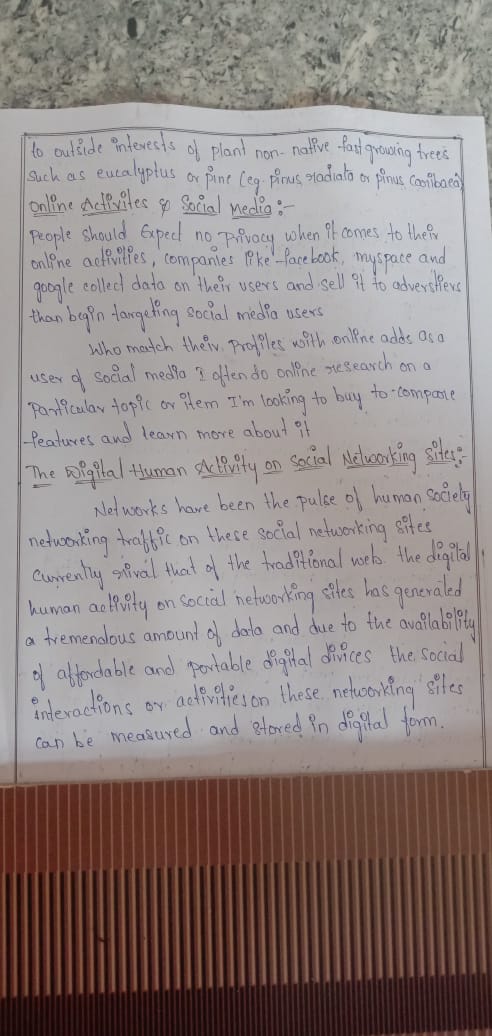 to outside interests of plant non-native fast growing trees
Such as eucalyptus or pine (eg. pinus radiata or pinus Caribaea)
Online Activites & Social Media :-
People should Expect no privacy when it comes to their
online activities, companies like facebook, myspace and
google collect data on their users and sell it to adverstiers
than begin targeting social media users
Who match their profiles with online adds as a
user of social media I often do online research on a
Particular topic or item I'm looking to buy to compare
features and learn more about it
The Digital Human Activity on Social Networking Sites:-
Networks have been the pulse of human Society
networking traffic on these social networking sites
Currently rival that of the traditional web. the digital
human activity on social networking sites has generaled
a tremendous amount of data and due to the availability
of affordable and portable digital divices the social
interactions or activities on these networking sites
can be measured and stored in digital form.